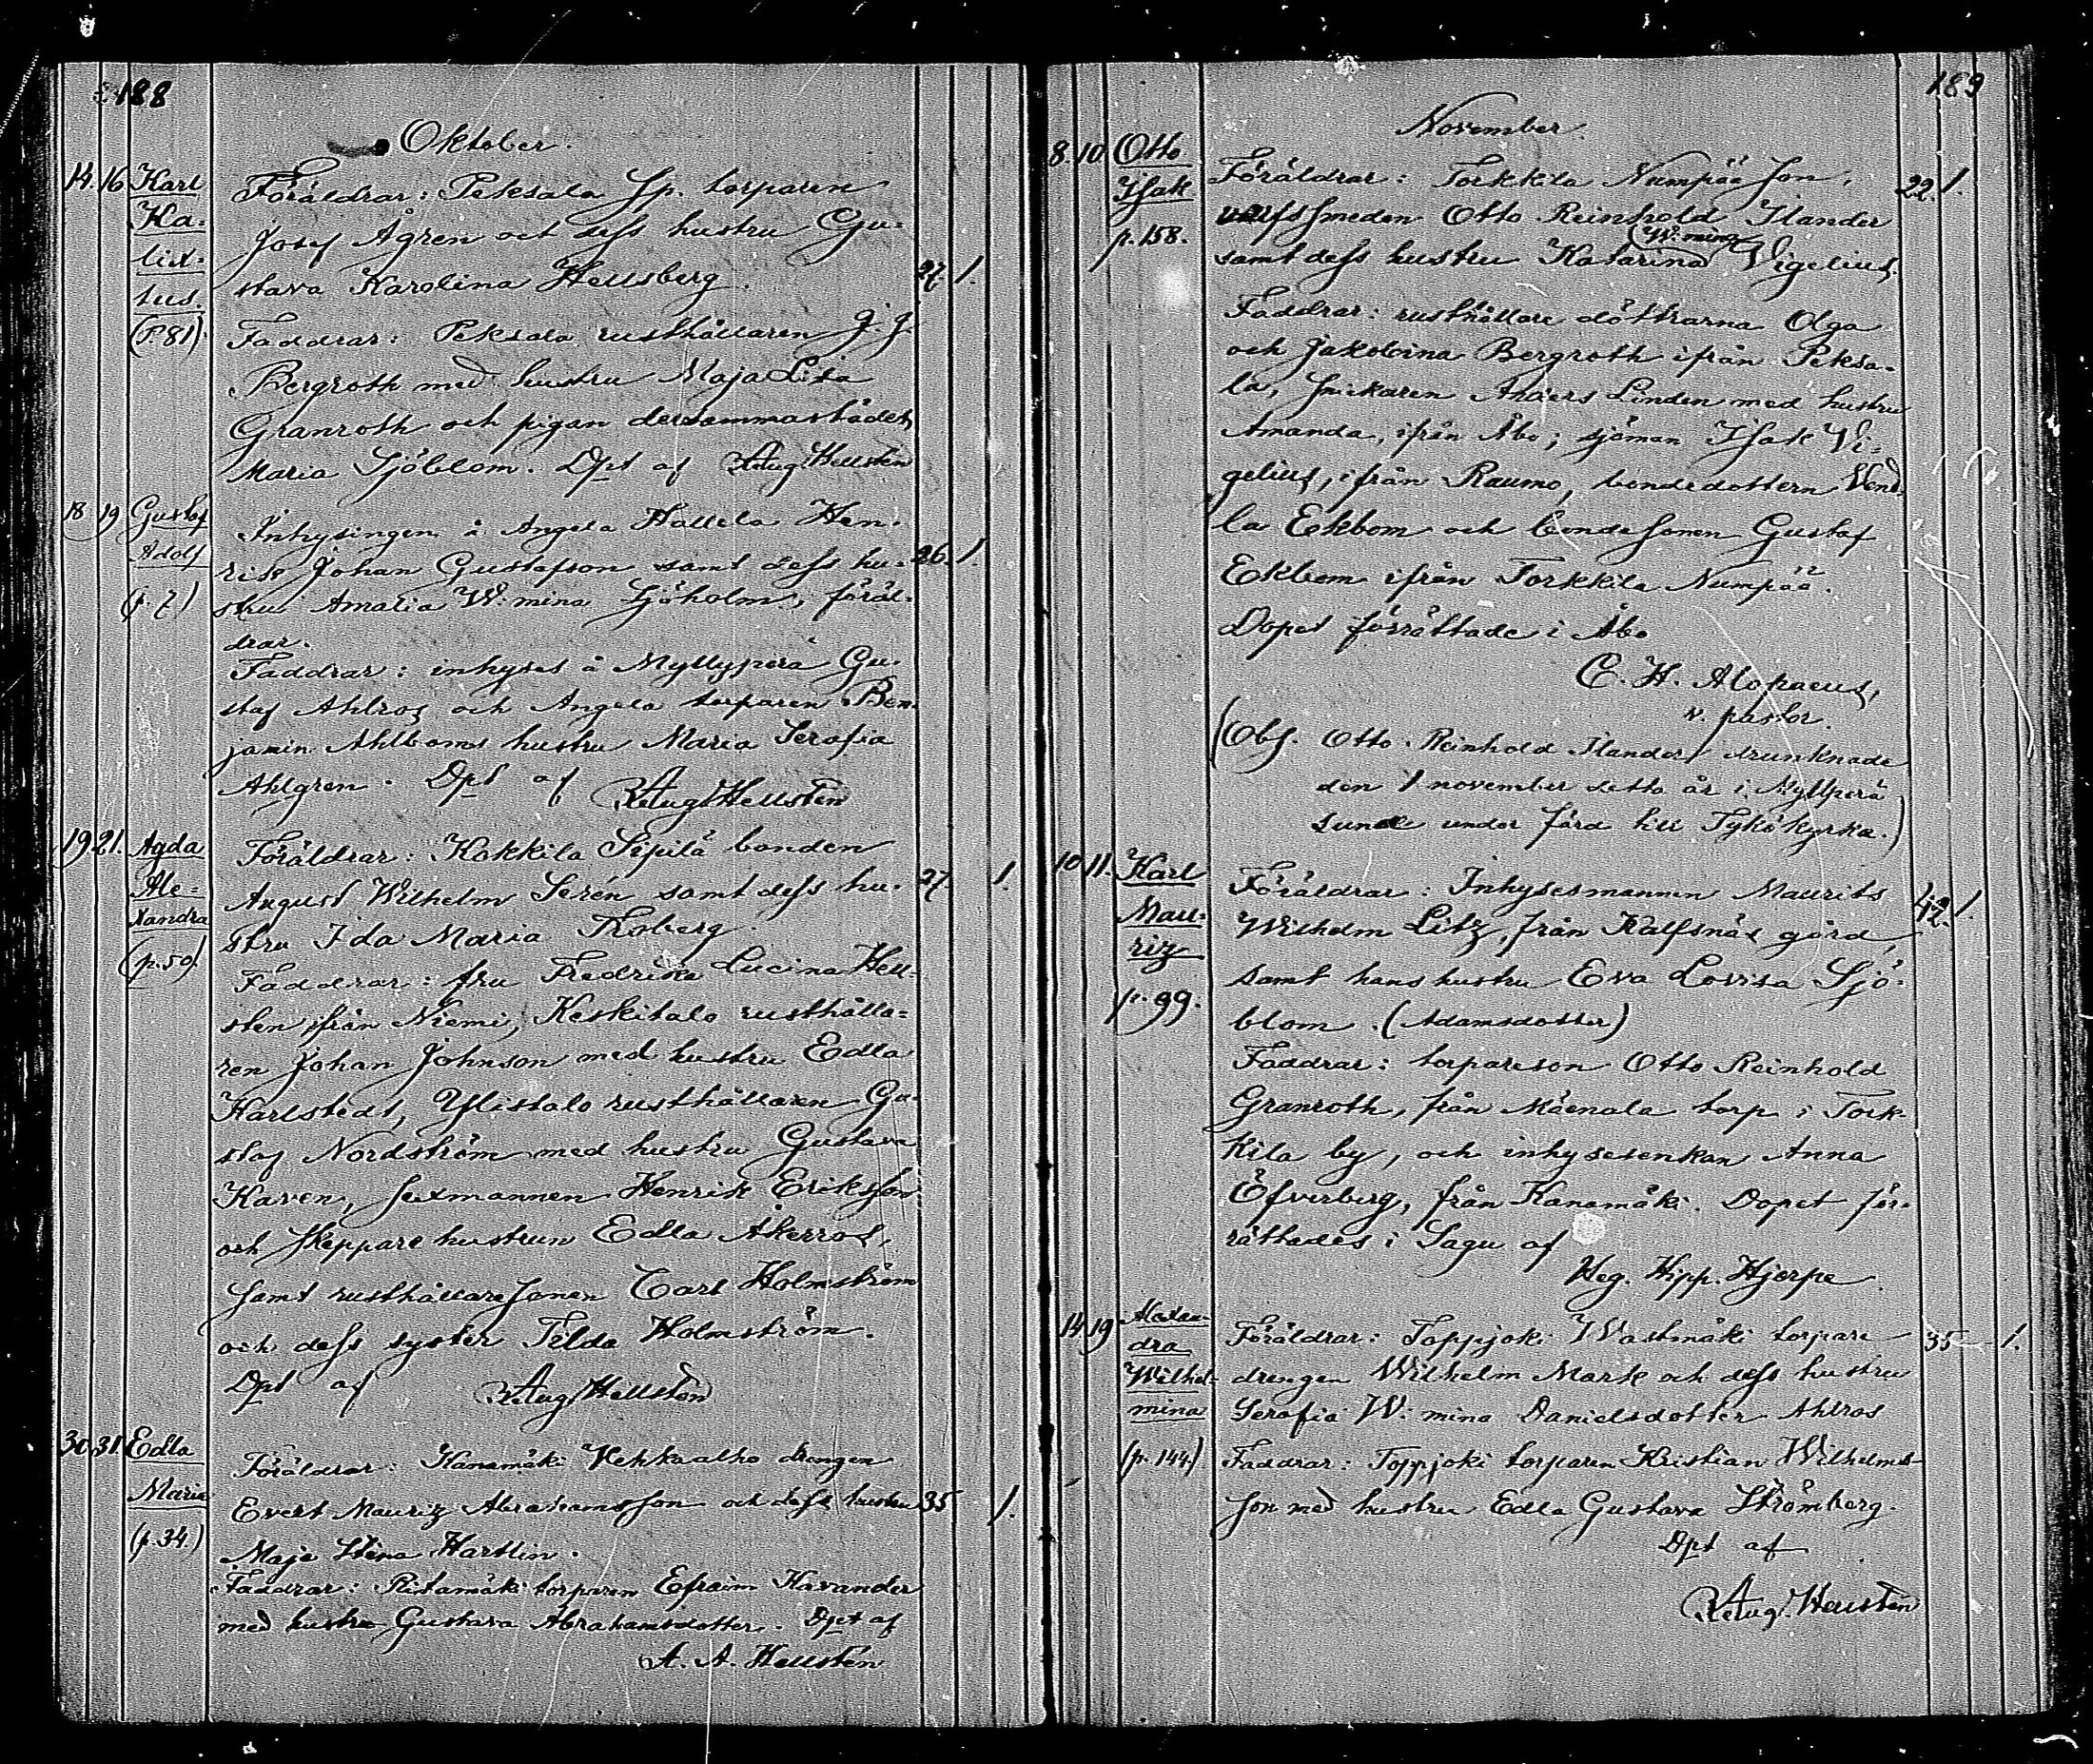 188
Oktober.
14. 16 Karl Ka- lix- tus. (P. 81).
Föräldrar: Peksala Sp. torparen
Josef Ågren och dess hustru Gu-
stava Karolina Hellsberg. 27. 1.
Faddrar: Peksala rusthållaren J. J.
Bergroth med hustru Maja Lisa
Granroth och pigan dersammastädes
Maria Sjöblom. Dpt af Aug. Hellsten
18 19 Gustaf Adolf (p. 7)
Inhysingen å Angela Hallela Hen-
rik Johan Gustafson samt dess hu- 26. 1.
stru Amalia W:mina Sjöholm, föräl-
drar.
Faddrar: inhyses å Myllyperä Gu-
staf Ahlros och Angela torparen Ben-
jamin Ahlboms hustru Maria Serafia
Ahlgren. Dpt af Aug. Hellsten
19 21. Agda Ale- xandra (p. 50).
Föräldrar: Kokkila Sipilä bonden
August Wilhelm Serén samt dess hu- 27 1.
stru Ida Maria Froberg.
Faddrar: fru Fredrika Lucina Hell-
sten ifrån Niemi, Keskitalo rusthålla-
ren Johan Johnson med hustru Edla
Karlstedt, Ylistalo rusthållaren Gu-
staf Nordström med hustru Gustava
Kaven, sexmannen Henrik Eriksson
och skeppare hustrun Edla Åkerros,
samt rusthållaresonen Carl Holmström
och dess syster Tilda Holmström.
Dpt af Aug. Hellsten
30 31. Edla Maria (p. 34.)
Föräldrar: Kanamäki Vehkaalho drengen
Evert Mauriz Abrahamsson och dess hustru 35 1.
Maja Stina Hartlin.
Faddrar: Ristamäki torparen Efraim Kavander
med hustru Gustava Abrahamsdotter. Dpt af
A. A. Hellsten
189
November.
8. 10 Otto Isak p. 158.
Föräldrar: Torkkila Numpää son, 22. 1.
varfssmeden Otto Reinhold Ilander
samt dess hustru Katarina (W:mina) Vigelius.
Faddrar: rusthållare döttrarna Olga
och Jakobina Bergroth ifrån Peksa-
la, snickaren Anders Linden med hustru
Amanda, ifrån Åbo; sjöman Isak Vi-
gelius, ifrån Raumo, bondedottern Vend-
la Ekbom och bondesonen Gustaf
Ekbom ifrån Torkkila Numpää.
Dopet förrättade i Åbo
C. H. Alopaeus,
v. pastor.
(Obs. Otto Reinhold Ilander drunknade
den 1 november detta år i Myllperä
sund under färd till Tykö kyrka.)
10 11. Karl Mau- riz p. 99.
Föräldrar: Inhysesmannen Maurits 42. 1.
Wilhelm Litz, från Kalfsnäs gård,
samt hans hustru Eva Lovisa Sjö-
blom. (Adamsdotter)
Faddrar: torpareson Otto Reinhold
Granroth, från Mäenala torp i Tork-
kila by, och inhysesenkan Anna
Öfverberg, från Kanamäki. Dopet för-
rättades i Sagu af
Heg. Hipp. Hjerpe
14 19 Alexan- dra Wilhel- mina (p. 144.)
Föräldrar: Toppjoki Wastmäki torpare 35 1.
drengen Wilhelm Mark och dess hustru
Serafia W:mina Danielsdotter Ahlros
Faddrar: Toppjoki torparen Kristian Wilhelms-
son med hustru Edla Gustava Strömberg.
Dpt af
Aug. Hellsten